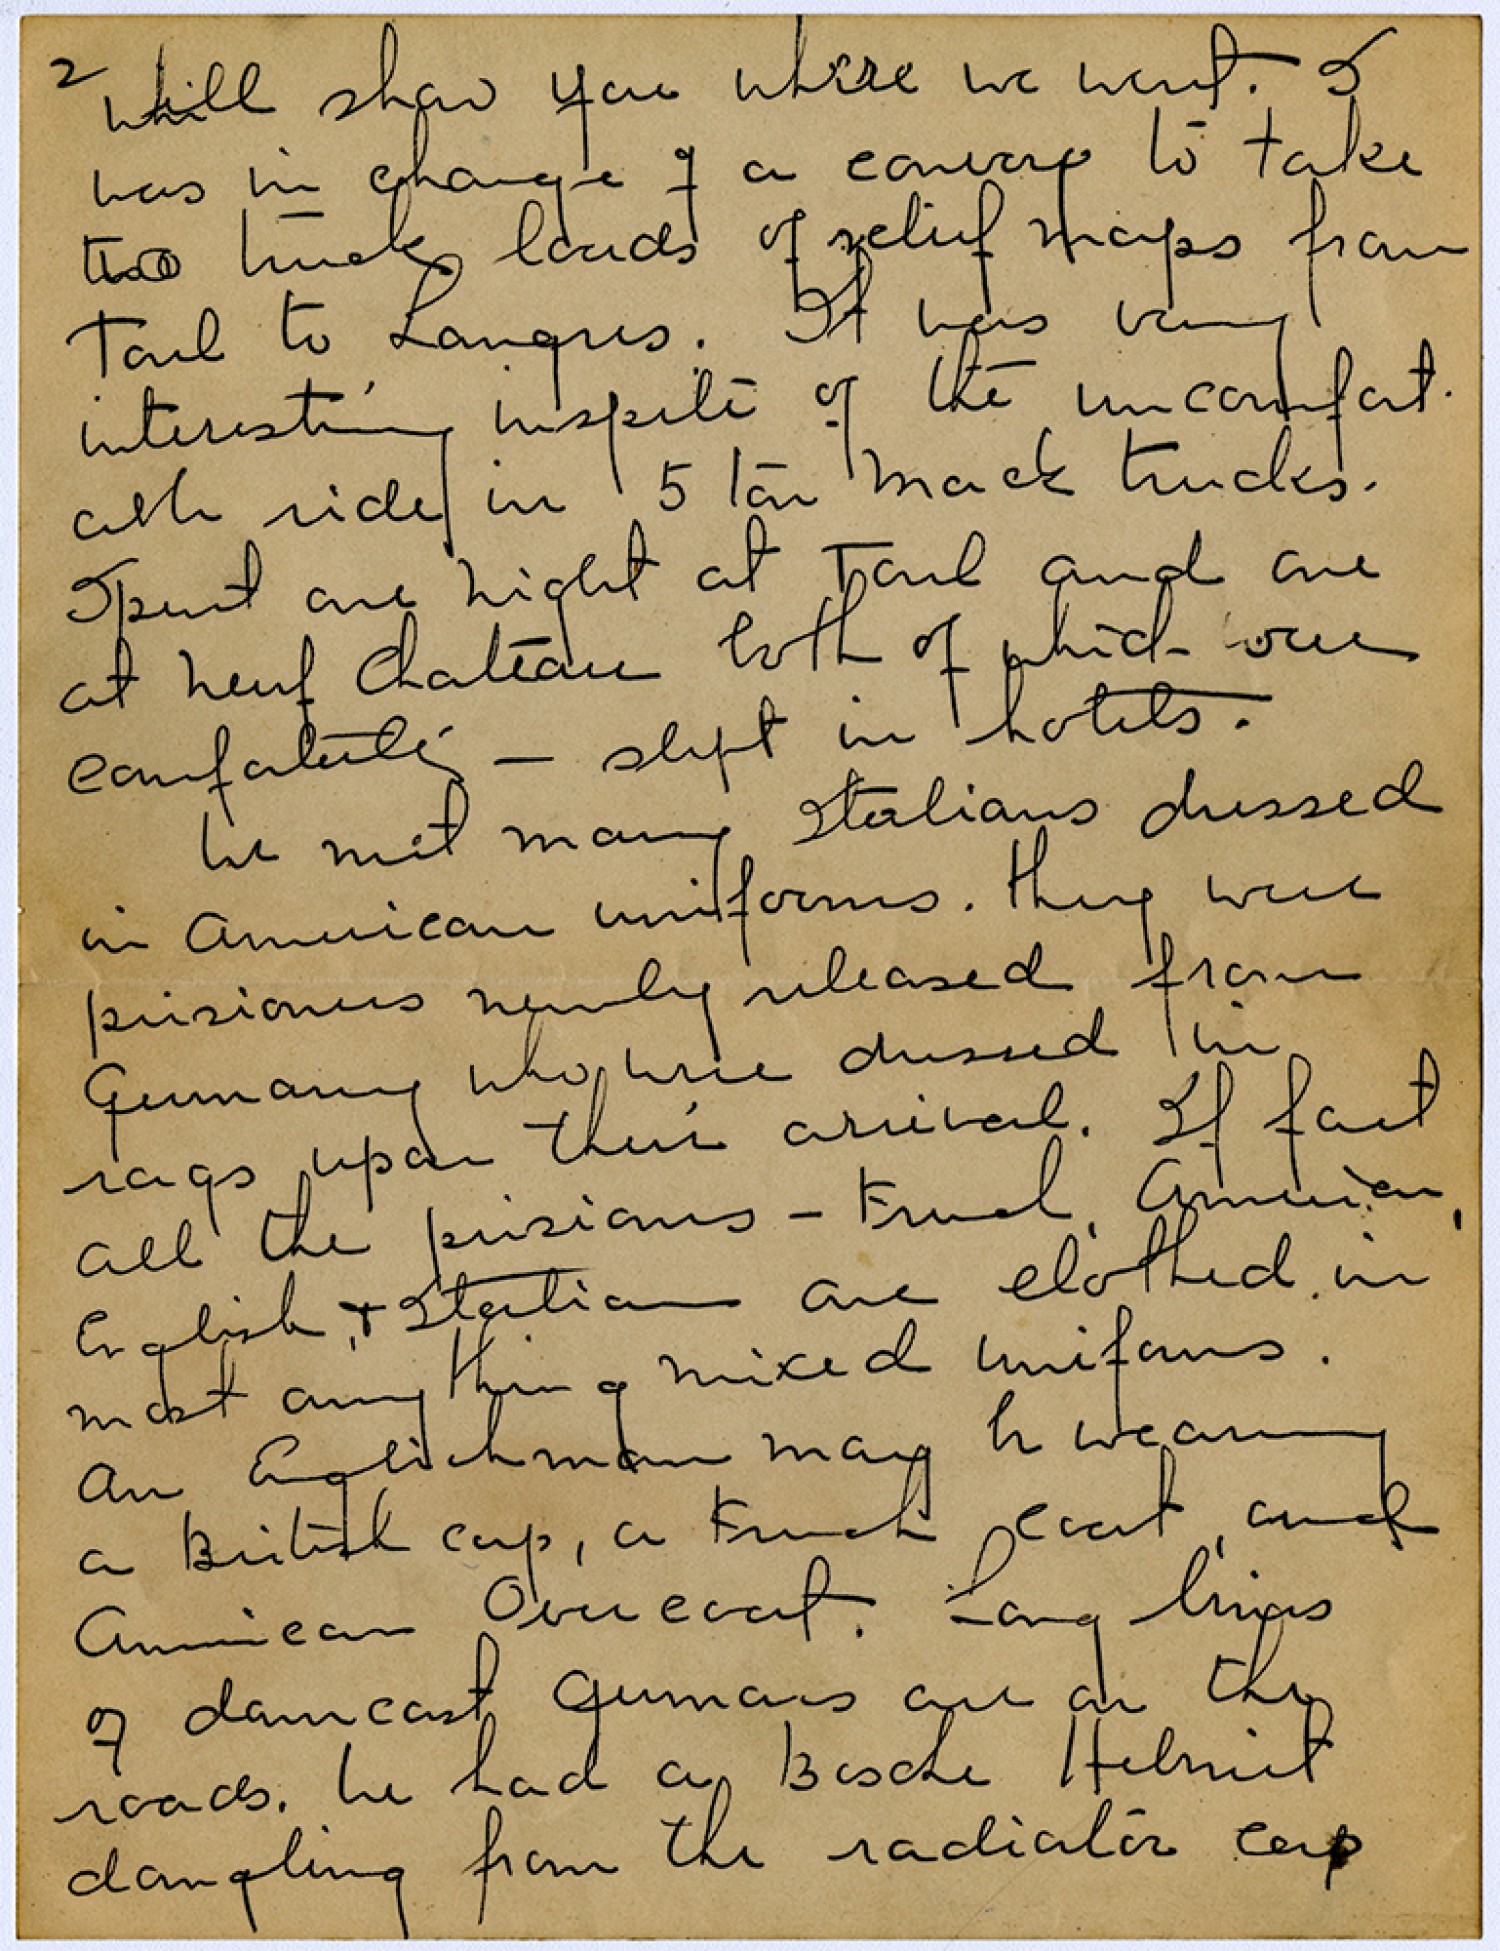 2 will show you where we went. I
was in charge of a convoy to take
two truck loads of relief maps from
Toul to Langres. It was very
interesting inspite of the uncomfort-
able ride in 5 ton Mack trucks.
Spent one night at Toul and one
at Neuf Chateau both of which were
comfortable – slept in hotels.
We met many Italians dressed
in American uniforms. They were
prisioners newly released from
Germany who were dressed in
rags upon their arrival. If fact
all the prisions – French, American,
English, + Italian are clothed in
most any thing mixed uniforms.
An Englishman may be wearing
a British cap, a French coat, and
American Overcoat. Long lines
of downcast Germans are on the
roads. We had a Bosche Helmet
dangling from the radiator cap